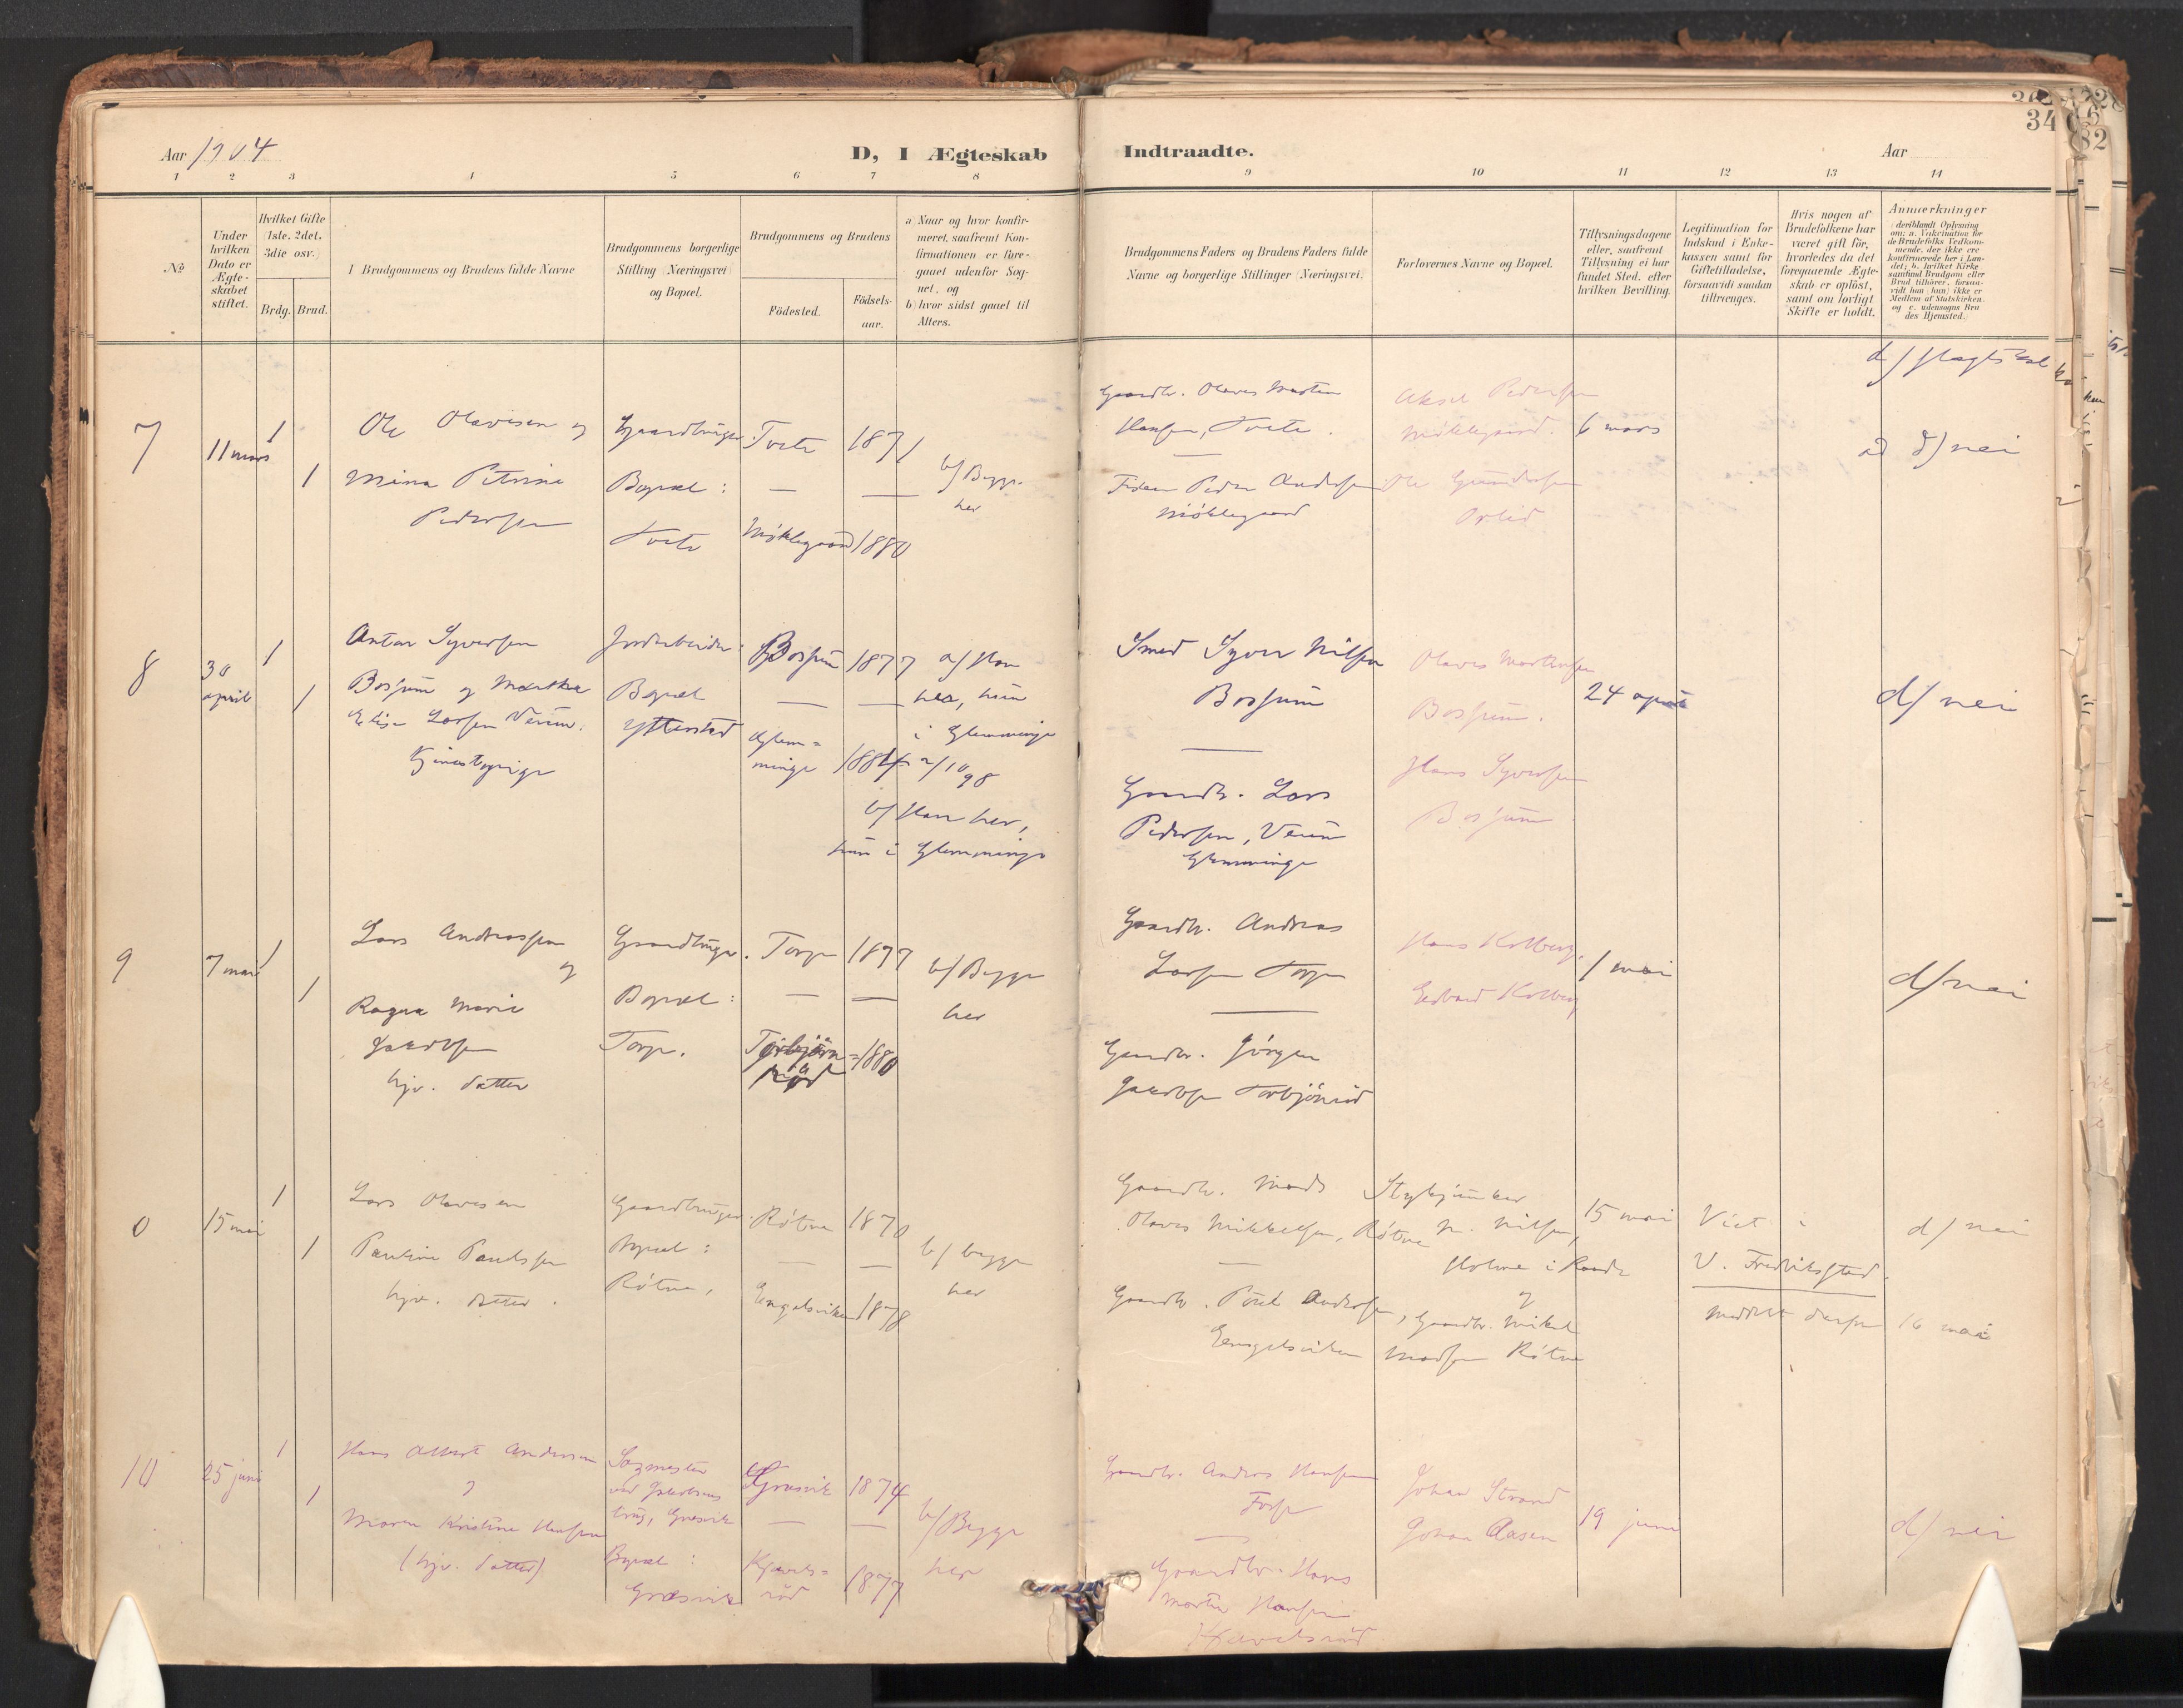 Aar 1904
D, I Ægteskab
Indtraadte.
Aar
34
1 2 3 4 5 6 7 8 9 10 11 12 13 14
No
Under hvilken Dato er Ægteskabet stiftet.
Hvilket Gifte (1ste, 2det, 3die osv.)
Brdg. Brud.
I Brudgommens og Brudens fulde Navne
Brudgommens borgerlige Stilling (Næringsvei) og Bopæl.
Brudgommens og Brudens
Födested.
Födselsaar.
a) Naar og hvor konfirmeret, saafremt Konfirmationen er foregaaet udenfor Sognet, og
b) hvor sidst gaaet til Alters.
Brudgommens Faders og Brudens Faders fulde Navne og borgerlige Stillinger (Næringsvei).
Forlovernes Navne og Bopæl.
Tillysningsdagene eller, saafremt Tillysning ei har fundet Sted, efter hvilken Bevilling.
Legitimation for Indskud i Enkekassen samt for Giftetilladelse, forsaavidt saadan tiltrænges.
Hvis nogen af Brudefolkene har været gift för, hvorledes da det foregaaende Ægteskab er oplöst, samt om lovligt Skifte er holdt.
Anmærkninger
(deriblandt Oplysning om: a. Vakcination for de Brudefolks Vedkommende, der ikke ere konfirmerede her i Landet; b. hvilket Kirkesamfund Brudgom eller Brud tilhörer, forsaavidt han (hun) ikke er Medlem af Statskirken, og c. udensogns Brudes Hjemsted.)
7
11 mars
1
1
Ole Olavesen og
Mina Petrine
Pedersen
Gaardbruger.
Bopæl:
Tvete
Tvete 1871
Møklegaard 1880
b/ Begge
her
Gaardbr. Olaves Martin
Hansen, Tvete.
Peder Andersen
Møklegaard
Aksel Pedersen
Møklegaard.
Ole Gundersen
6 mars
d/ nei
8
30
april
1
1
Anton Syversen
Bossum og Martha
Elise Larsen Veum.
tjenestepige
Jordarbeider
Bopæl
Ytterstad
Bossum 1877
Glem=
minge 1881
a/ Han
her, hun
i Glemminge
2/10 98
b/ Han her,
hun i Glemminge
Smed Syver Nilsen
Bossum
Gaardb. Lars
Pedersen, Veum
Glemminge
Olaves Martinsen
Bossum.
Hans Syversen
Bossum
24 april
d/ nei
9
7 mai
1
1
Lars Andreassen
og
Ragna Marie
Jacobsen
hjv. datter
Gaardbruger.
Bopæl:
Torp.
Torp 1877
Torbjørn=
rød 1880
b/ Begge
her
Gaardb. Andreas
Larsen Torp
Gaardbr. Jørgen
Jacobsen Torbjørnrød
Hans Kolberg
Edvard Kolberg
1 mai
d/ nei
0
15 mai
1
1
Lars Olavesen
Pauline Paulssen
hjv. datter.
Gaardbruger.
Bopæl:
Røtne,
Røtne 1870
Engelsviken 1878
b/ begge
her
Gaardb. Mads
Olaves Mikkelsen, Røtne
Gaardb. Poul Andersen,
Engelsviken
Stykjunker
N. Nilsen,
Holme i Raade
og
Gaardbr. Mikal
Madsen Røtne
15 mai
Viet i
V. Fredrikstad.
meddelt derfra 16 mai
d/ nei
10
25 juni
1
1
Hans Albert Andersen
og
Maren Kristine Hansen
(hjv. datter)
Sagmester
ved Jakobsens
brug, Gresvik
Bopæl:
Gresvik
Gresvik 1874
Kjærels=
rød 1877
b/ Begge
her
Gaardbr. Andreas Hansen
Gaardbr. Hans
Martin Hansen
Kjærelsrød
Johan Strand
Johan Aasen
19 juni
d/ nei